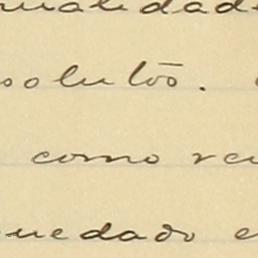 nalidad
solutos.
como re
quedado e